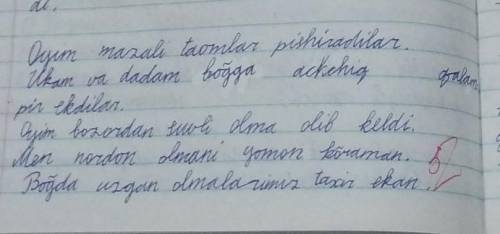 di.
Oyim mazali taomlar pishiradilar.
Ukam va dadam bog̃ga achchiq qalam
pir ekdilar.
Oyim bozordan suvli olma olib keldi.
Men nordon olmani yomon kõraman.
Bog̃da uzgan olmalarimiz taxir ekan.
5